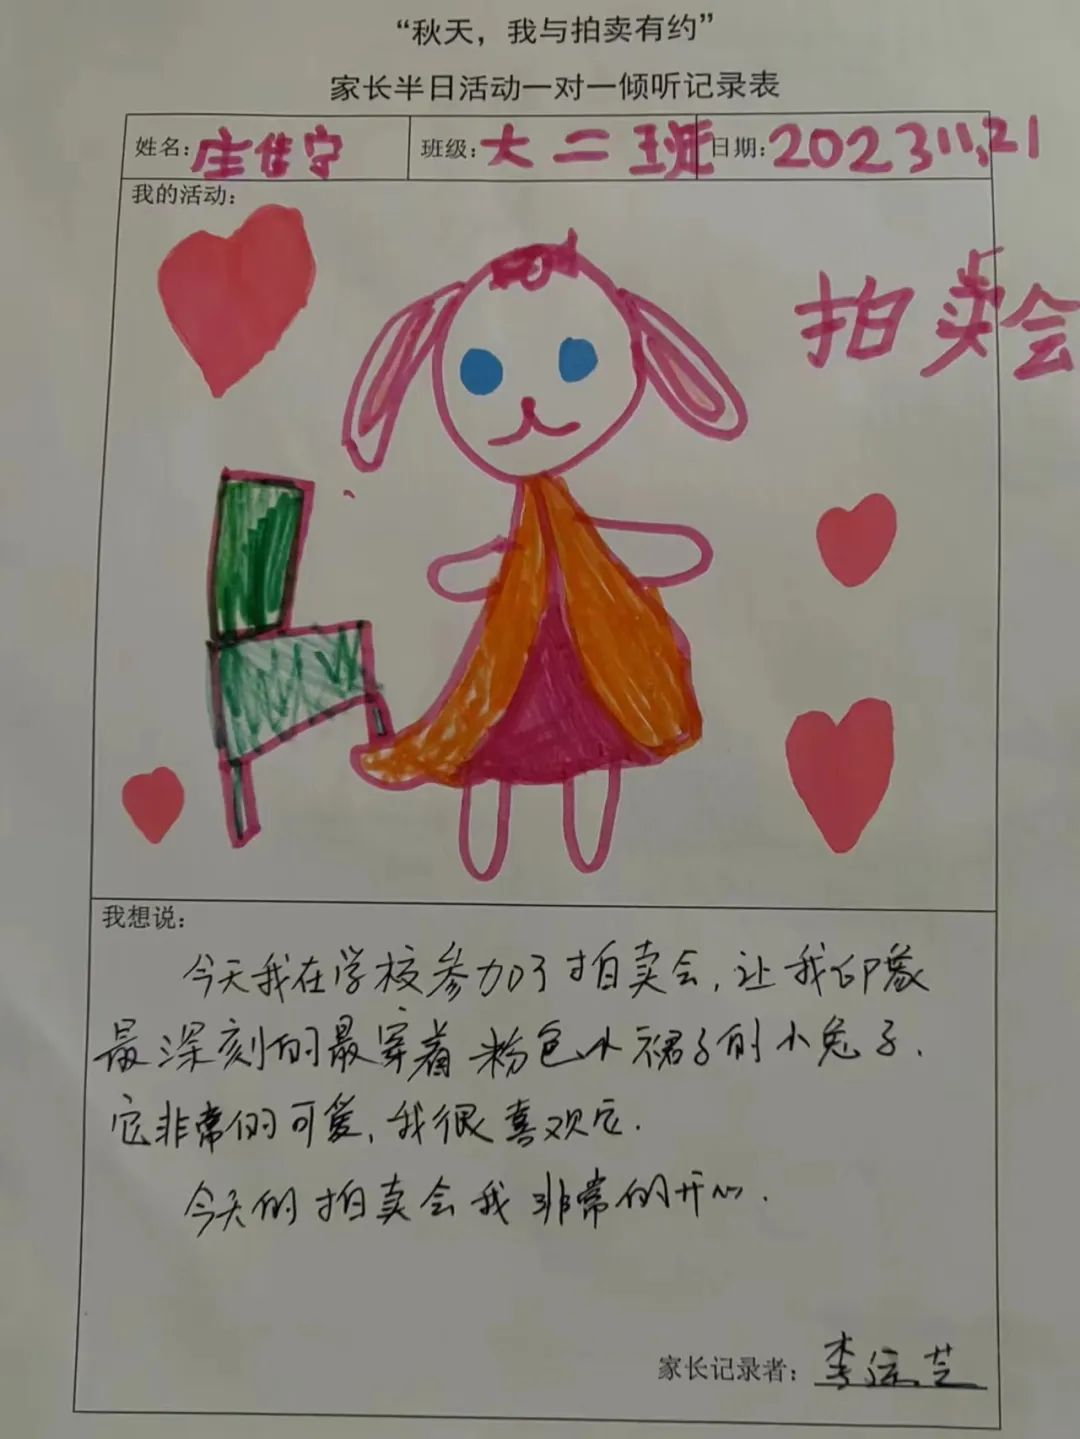 “秋天，我与拍卖有约”
家长半日活动一对一倾听记录表
姓名：庄佳宁 班级：大二班 日期：2023 11.21
我的活动：
拍卖会
我想说：
今天我在学校参加了拍卖会，让我印象
最深刻的最穿着粉色小裙子的小兔子.
它非常的可爱，我很喜欢它.
今天的拍卖会我非常的开心.
家长记录者：李运芝